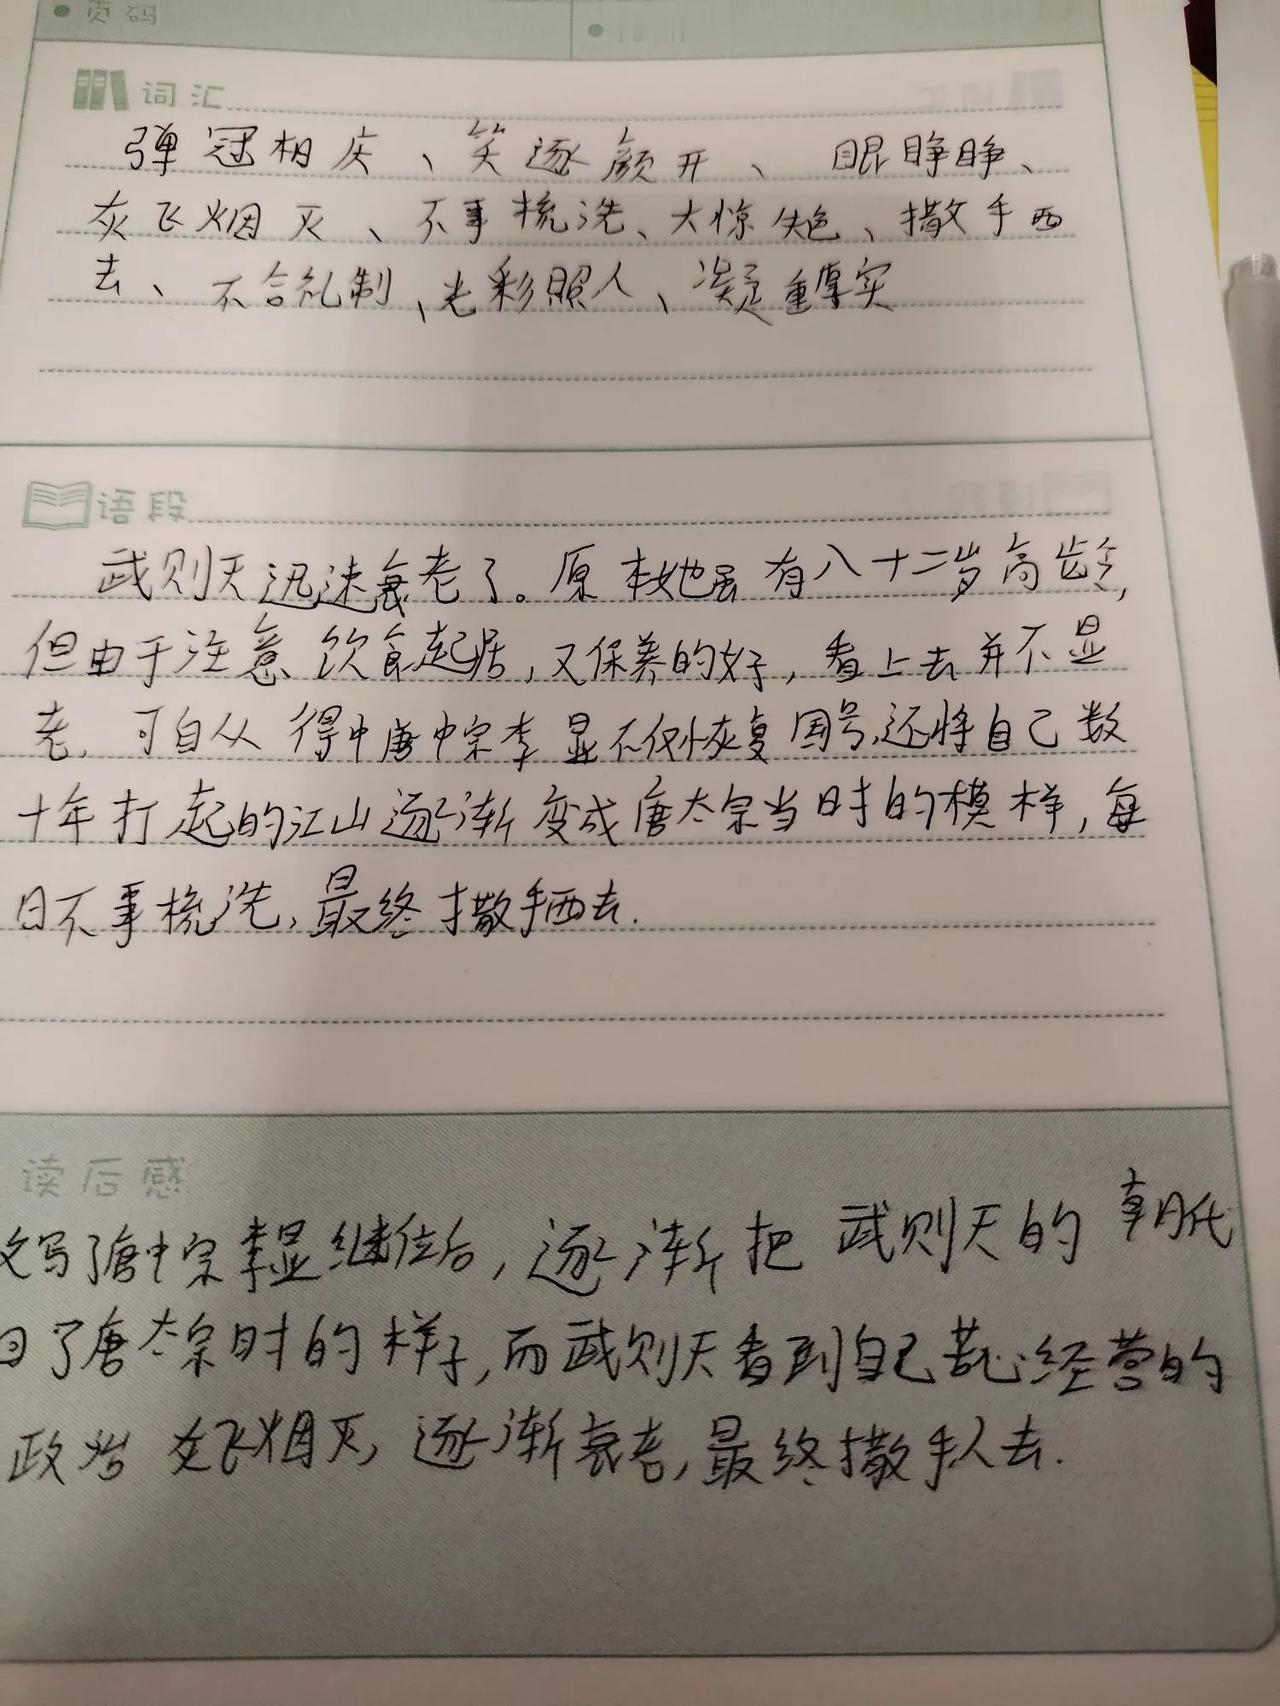 页码
词汇
弹冠相庆、笑逐颜开、眼睁睁、
灰飞烟灭、不事梳洗、大惊失色、撒手西
去、不合礼制、光彩照人、凝重厚实
语段
武则天迅速衰老了。原本她虽有八十二岁高龄,
但由于注意饮食起居,又保养的好,看上去并不显
老,可自从得中唐中宗李显不仅恢复国号,还将自己数
十年打起的江山逐渐变成唐太宗当时的模样,每
日不事梳洗,最终撒手西去.
读后感
文写了唐中宗李显继位后,逐渐把武则天的朝代
回了唐太宗时的样子,而武则天看到自己苦心经营的
政治灰飞烟灭,逐渐衰老,最终撒手人去.